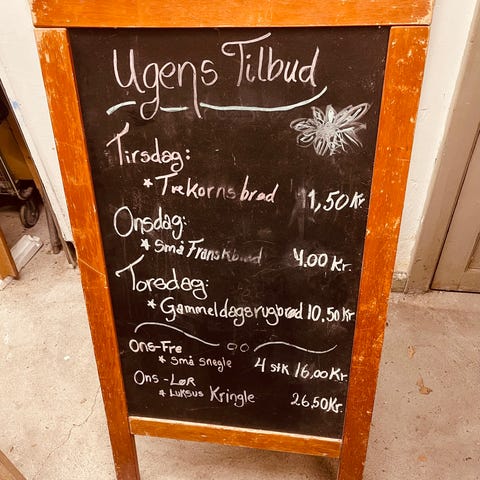 Ugens Tilbud
Tirsdag:
* Trekornsbrød 11,50 Kr
Onsdag:
* Små Franskbrød 4,00 Kr.
Torsdag:
* Gammeldagsrugbrød 10,50 Kr.
Ons-Fre
* Små snegle 4 stk 16,00 Kr.
Ons-Lør
* Luksus Kringle 26,50 Kr.